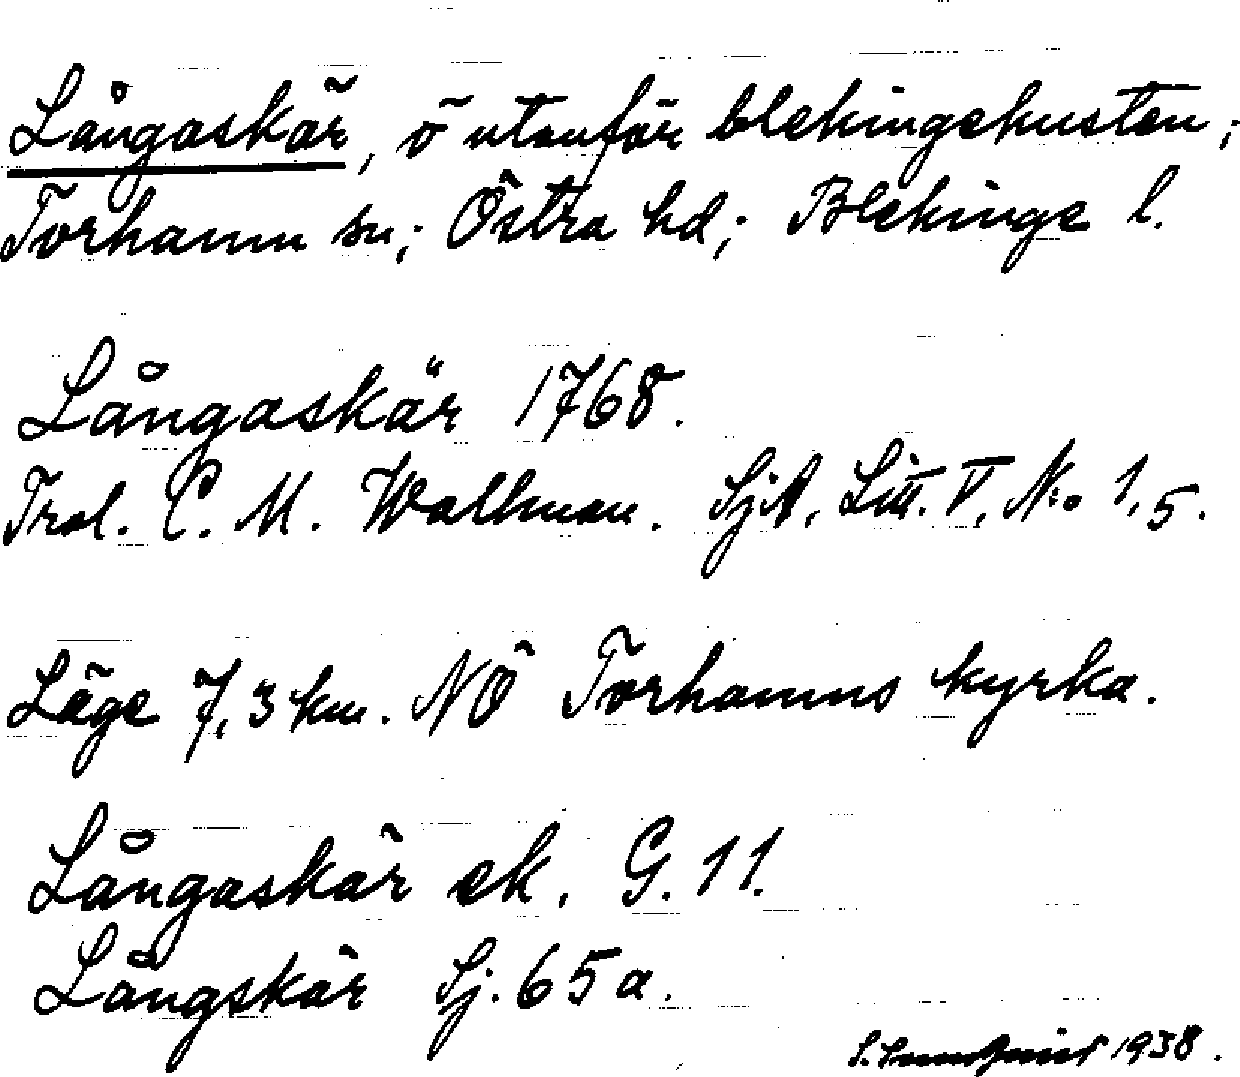 Långaskär, ö utanför blekingekusten;
Torhamn sn; Östra hd; Blekinge l.
Långaskär 1768.
Trol. C. M. Wallman. SjA, Litt. V, No 1,5.
Läge 7,3 km. NÖ Torhamns kyrka.
Långaskär ek. G. 11.
Långskär Sj. 65a.
1938.